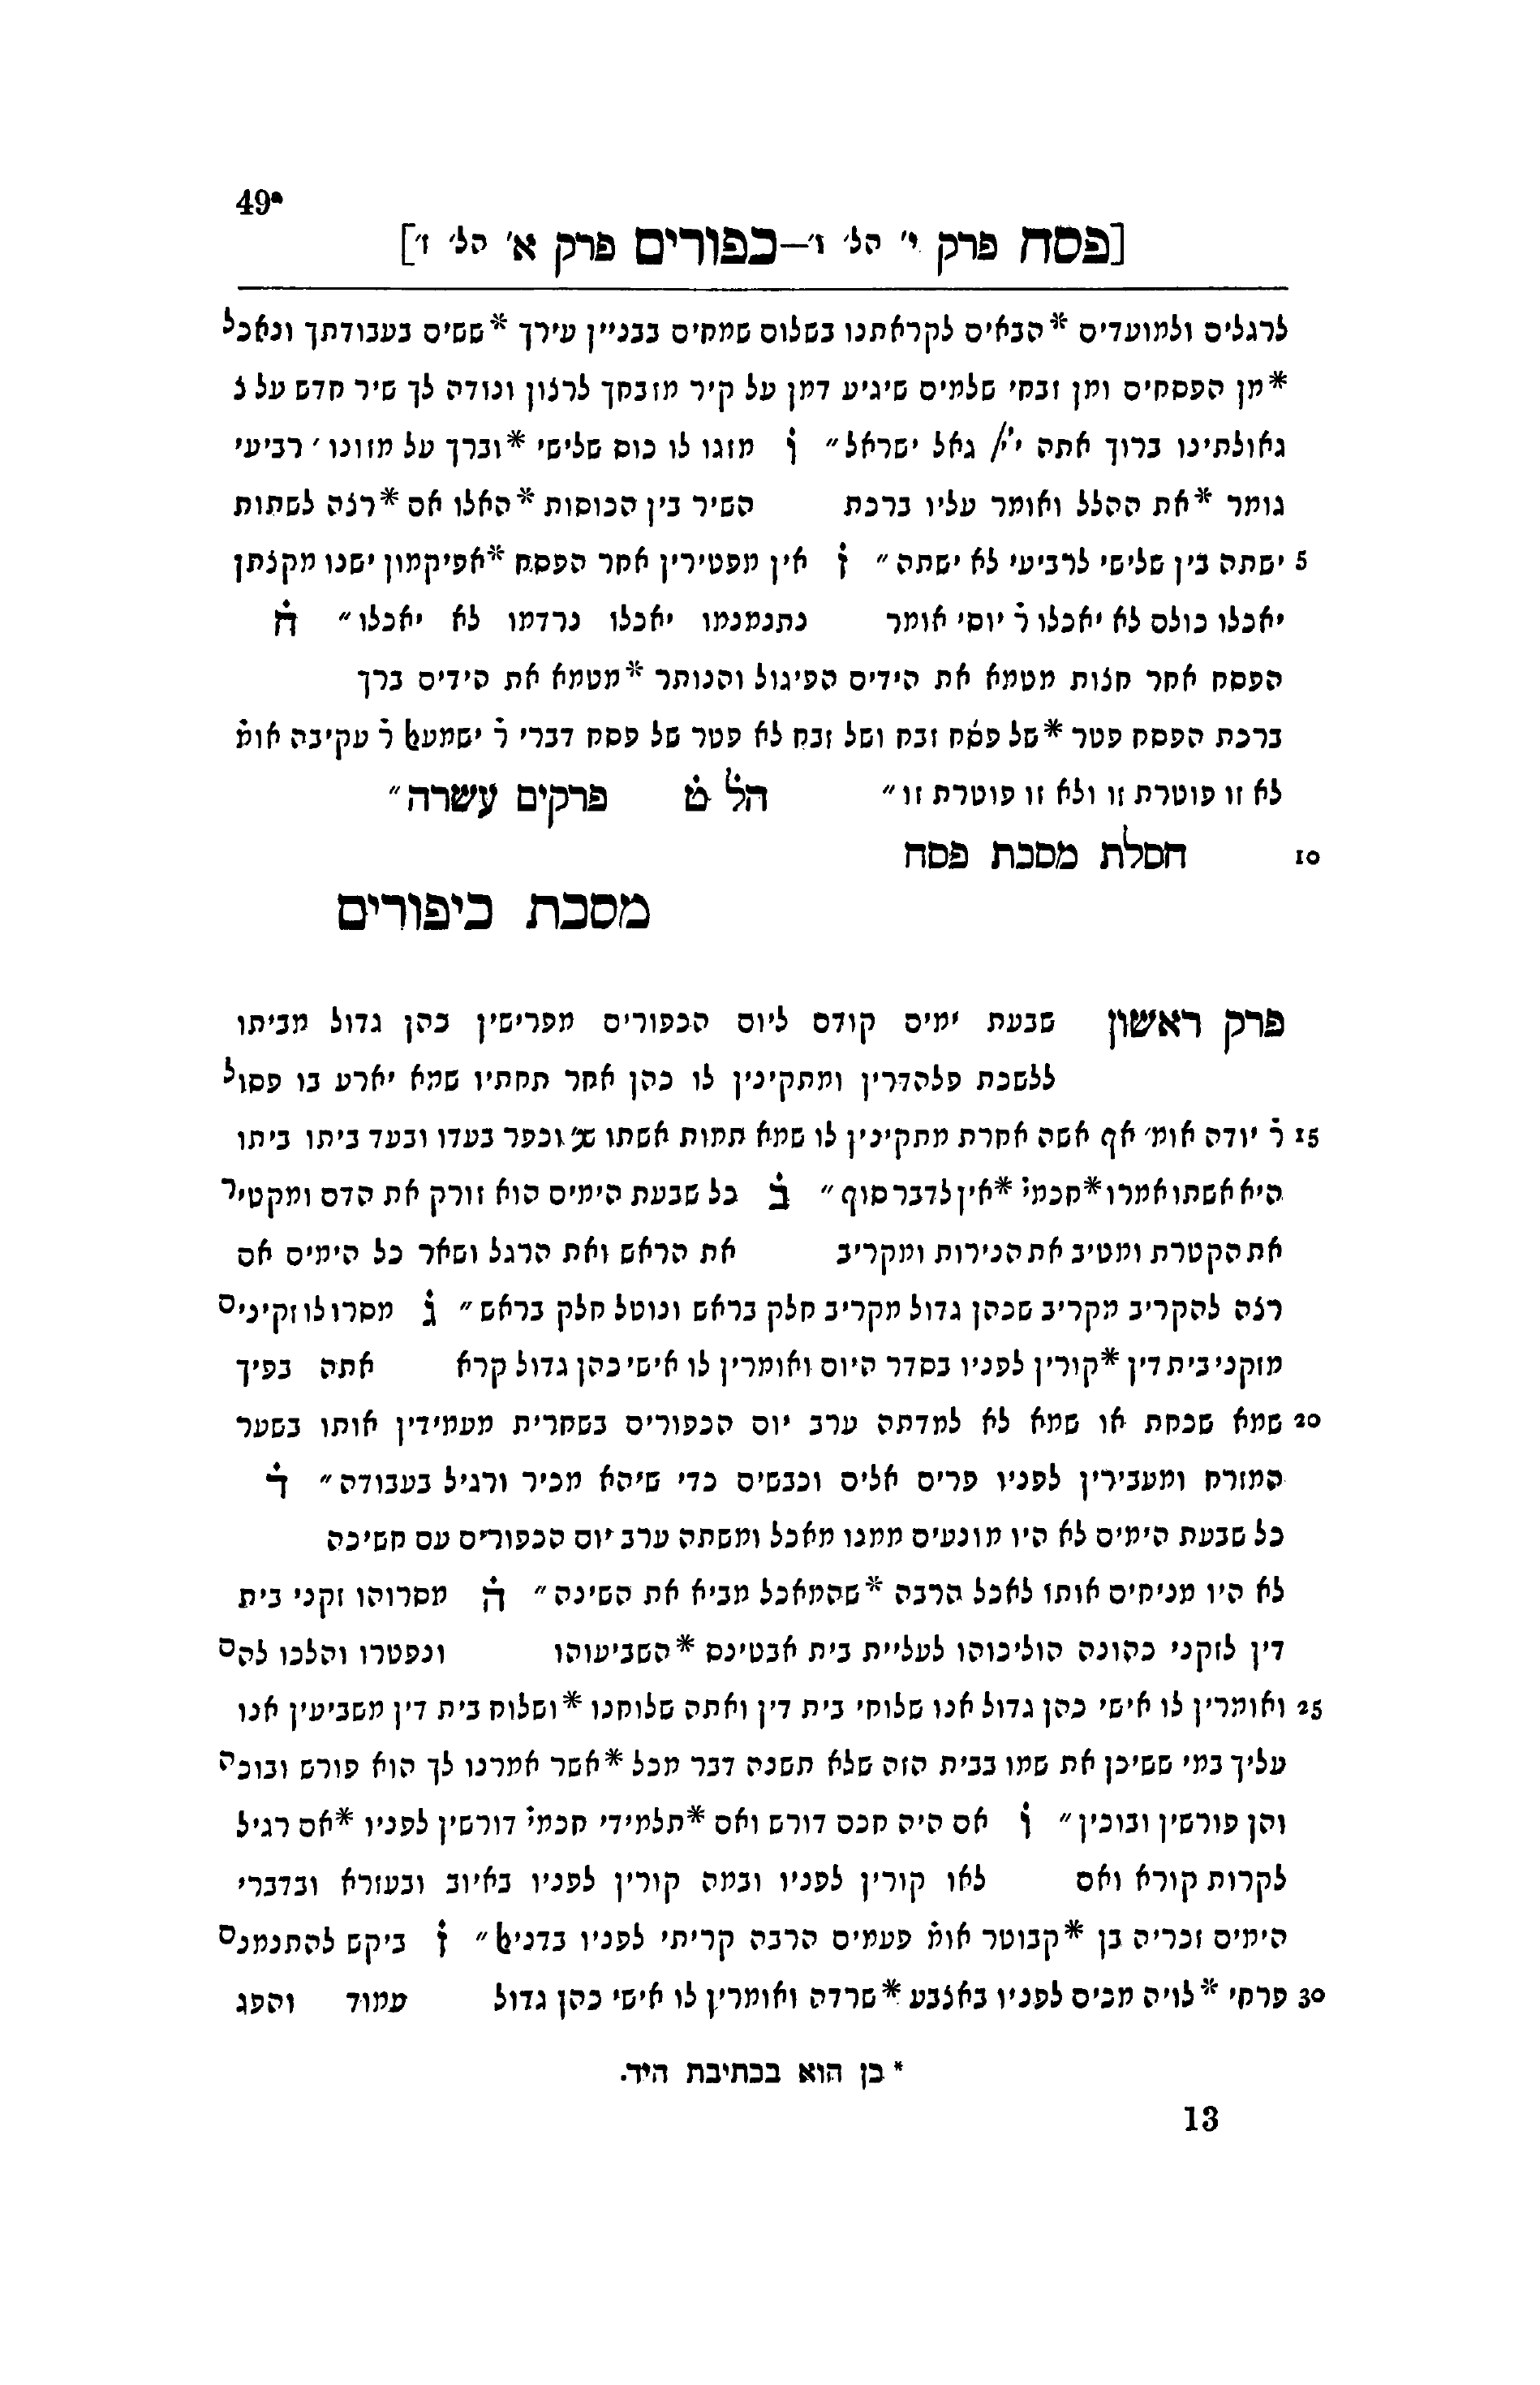 49ª
[פסח פרק י׳ הל׳ ז׳—כפורים פרק א׳ הל׳ ז׳]
לרגלים ולמועדים *הבאים לקראתנו בשלום שמחים בבניין עירך *ששים בעבודתך ונאכל
*מן הפסחים ומן זבחי שלמים שיגיע דמן על קיר מזבחך לרצון ונודה לך שיר חדש על צ
גאולתינו ברוך אתה גאל ישראל״ ו מזגו לו כוס שלישי *וברך על מזונו ׳ רביעי
גומר *את ההלל ואומר עליו ברכת השיר בין הכוסות *האלו אם *רצה לשתות
5 ישתה בין שלישי לרביעי לא ישתה״ ז אין מפטירין אחר הפסח *אפיקמון ישנו מקצתן
יאכלו כולם לא יאכלו ר׳ יוסי אומר נתנמנמו יאכלו נרדמו לא יאכלו״ ח
הפסח אחר חצות מטמא את הידים הפיגול והנותר *מטמא את הידים ברך
ברכת הפסח פטר *של פסח זבח ושל זבח לא פטר של פסח דברי ר׳ ישמעאל ר׳ עקיבה אומ׳
לא זו פוטרת זו ולא זו פוטרת זו״ הל ט פרקים עשרה״
10 חסלת מסכת פסח
מסכת כיפורים
פרק ראשון שבעת ימים קודם ליום הכפורים מפרישין כהן גדול מביתו
ללשכת פלהדרין ומתקינין לו כהן אחר תחתיו שמא יארע בו פסול
15 ר׳ יודה אומ׳ אף אשה אחרת מתקינין לו שמא תמות אשתו שנ׳ וכפר בעדו ובעד ביתו ביתו
היא אשתו אמרו *חכמי׳ *אין לדבר סוף״ ב כל שבעת הימים הוא זורק את הדם ומקטיר
את הקטרת ומטיב את הנירות ומקריב את הראש ואת הרגל ושאר כל הימים אם
רצה להקריב מקריב שכהן גדול מקריב חלק בראש ונוטל חלק בראש״ ג מסרו לו זקינים
מזקני בית דין *קורין לפניו בסדר היום ואומרין לו אישי כהן גדול קרא אתה בפיך
20 שמא שכחת או שמא לא למדתה ערב יום הכפורים בשחרית מעמידין אותו בשער
המזרח ומעבירין לפניו פרים אלים וכבשים כדי שיהא מכיר ורגיל בעבודה״ ד
כל שבעת הימים לא היו מונעים ממנו מאכל ומשתה ערב יום הכפורים עם חשיכה
לא היו מניחים אותו לאכל הרבה *שהמאכל מביא את השינה״ ה מסרוהו זקני בית
דין לזקני כהונה הוליכוהו לעליית בית אבטינס *השביעוהו ונפטרו והלכו להם
25 ואומרין לו אישי כהן גדול אנו שלוחי בית דין ואתה שלוחנו *ושלוח בית דין משביעין אנו
עליך במי ששיכן את שמו בבית הזה שלא תשנה דבר מכל *אשר אמרנו לך הוא פורש ובוכה
והן פורשין ובוכין״ ו אם היה חכם דורש ואם *תלמידי חכמי׳ דורשין לפניו *אם רגיל
לקרות קורא ואם לאו קורין לפניו ובמה קורין לפניו באיוב ובעזרא ובדברי
הימים זכריה בן *קבוטר אומ׳ פעמים הרבה קריתי לפניו בדניאל״ ז ביקש להתנמנם
30 פרחי *לויה מכים לפניו באצבע *שרדה ואומרין לו אישי כהן גדול עמוד והפג
* כן הוא בכתיבת היד.
13